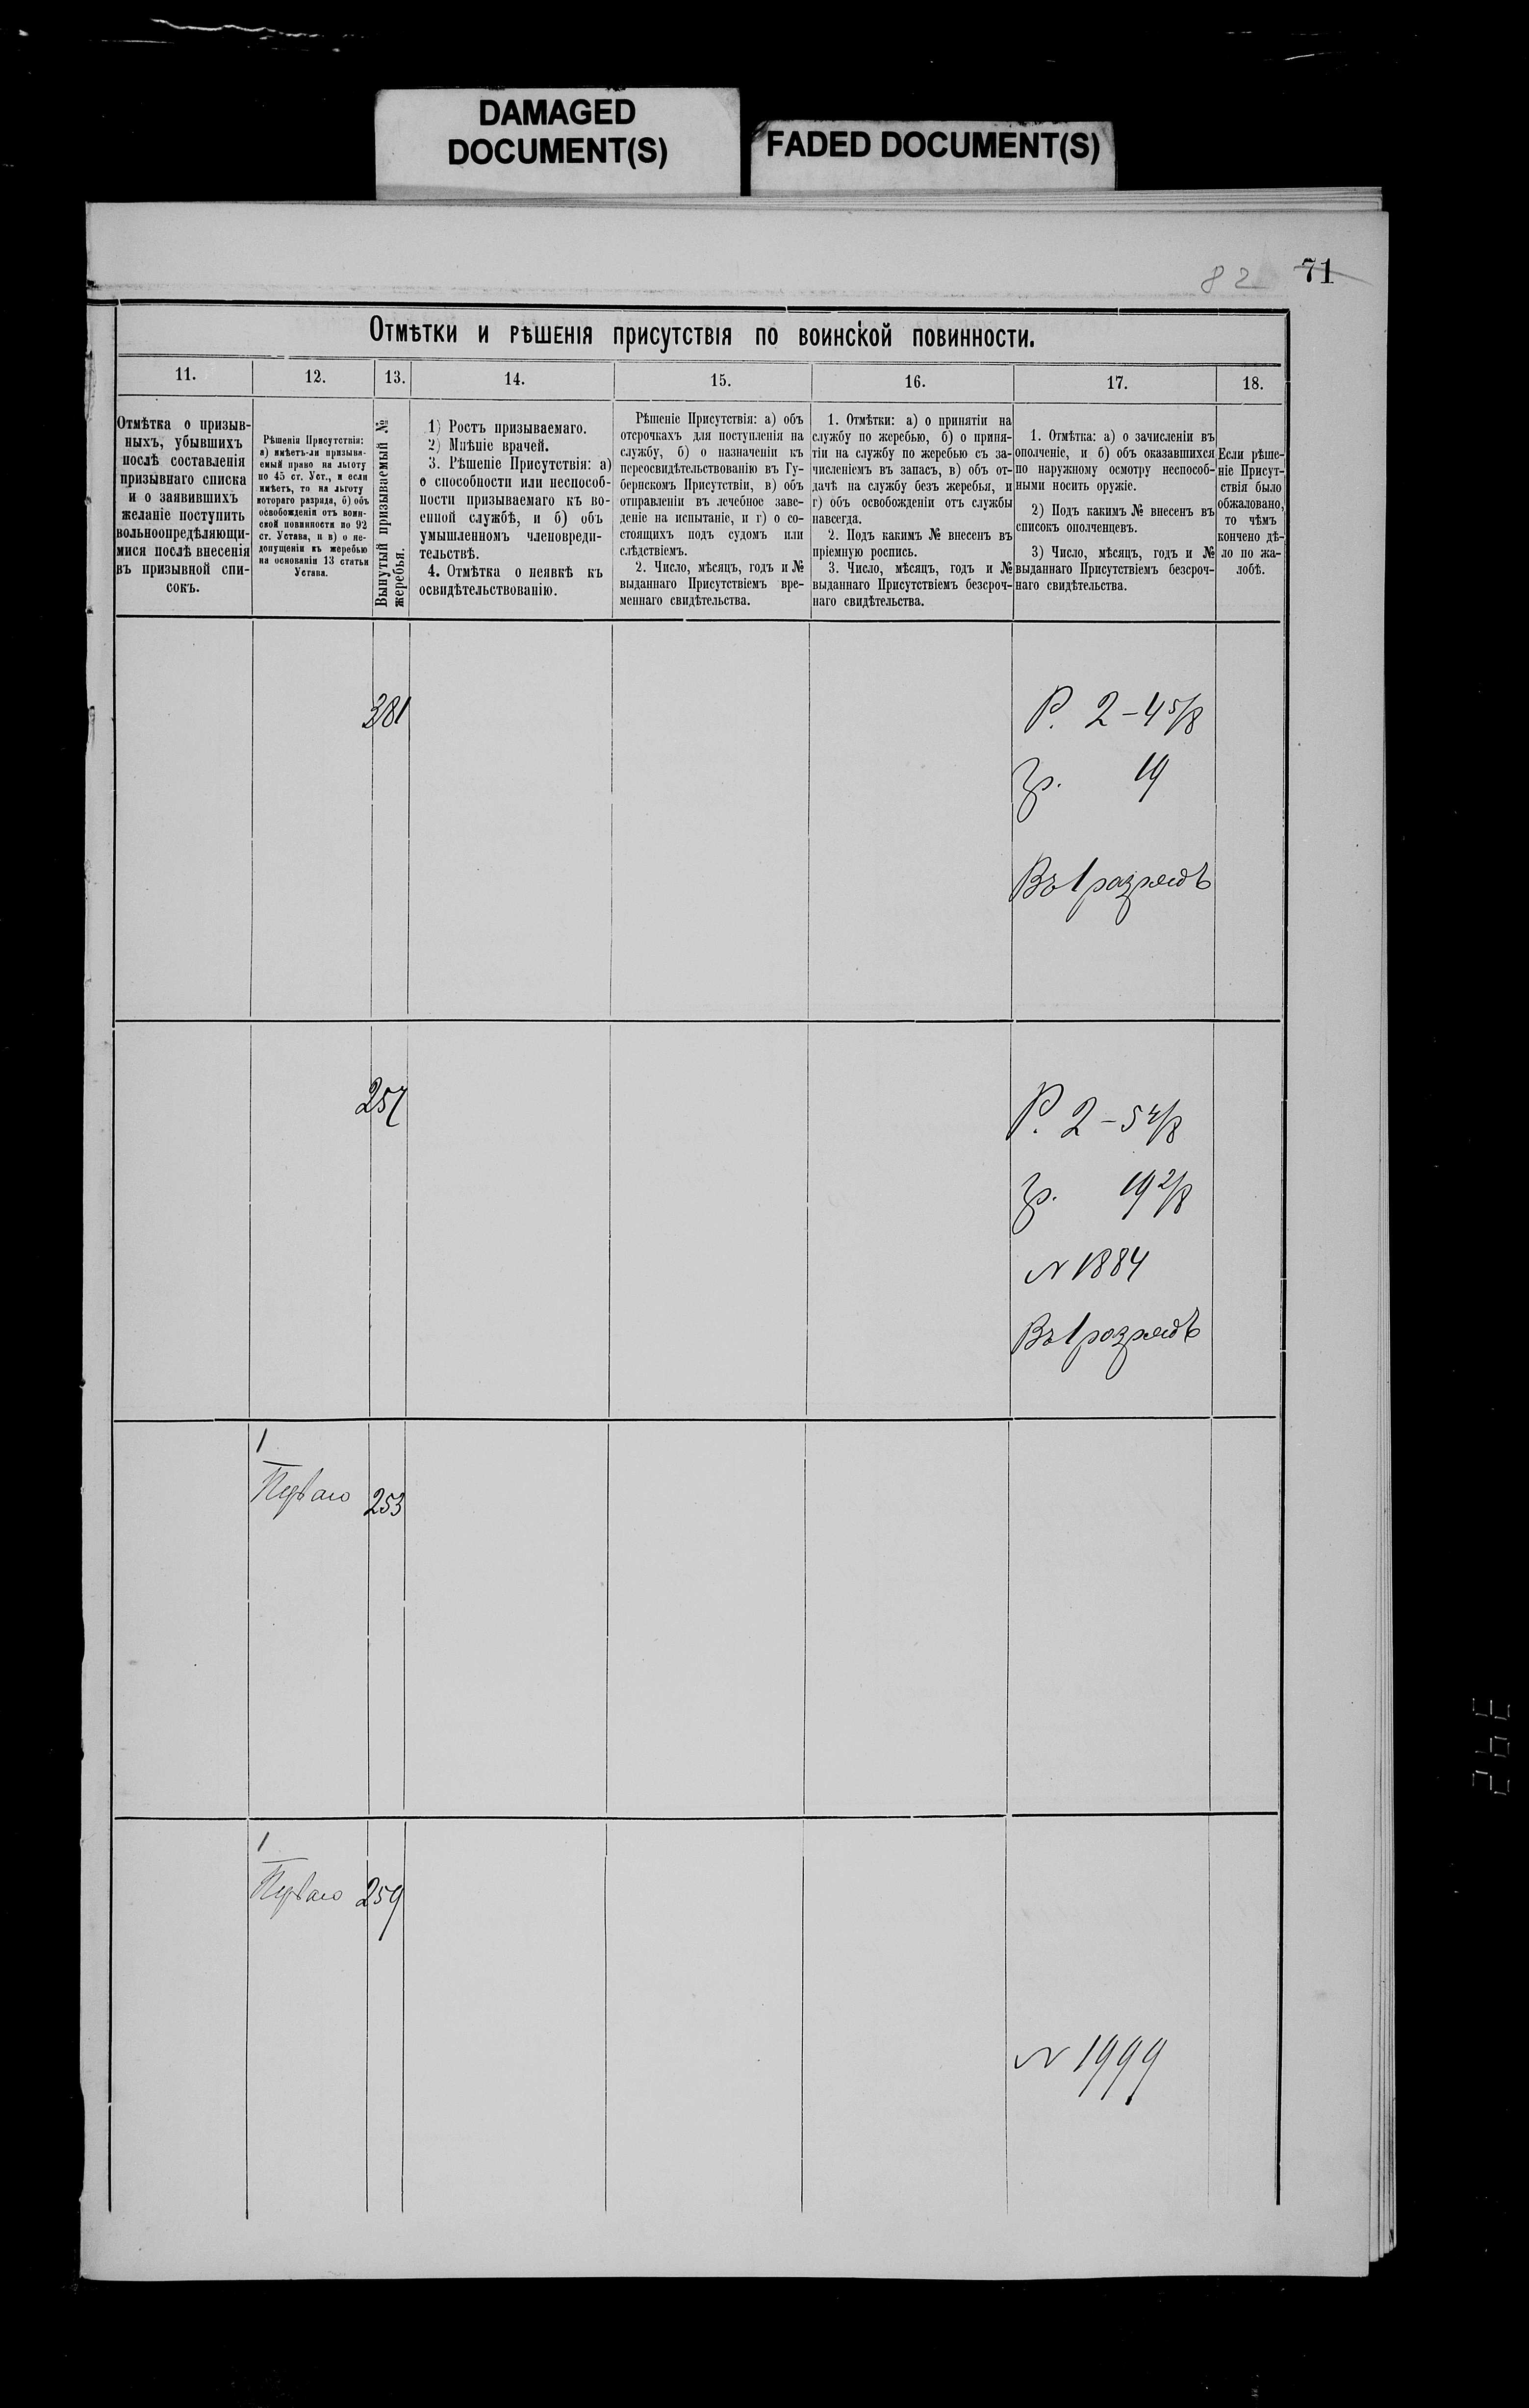 DAMAGED
DOCUMENT(S)
FADED DOCUMENT(S)
82 71
Отмѣтки и рѣшенія присутствія по воинской повинности.
11. 12. 13. 14. 15. 16. 17. 18.
Отмѣтка о призыв-
ныхъ, убывшихъ
послѣ составленія
призывнаго списка
и о заявившихъ
желаніе поступить
вольноопредѣляющи-
мися послѣ внесенія
въ призывной спи-
сокъ.
Рѣшенія Присутствія:
а) имѣетъ-ли призыва-
емый право на льготу
по 45 ст. Уст., и если
имѣетъ, то на льготу
котораго разряда, б) объ
освобожденіи отъ воин-
ской повинности по 92
ст. Устава, и в) о не-
допущеніи къ жеребью
на основаніи 13 статьи
Устава.
Вынутый призываемый №
жеребья.
1) Ростъ призываемаго.
2) Мнѣніе врачей.
3. Рѣшеніе Присутствія: а)
о способности или неспособ-
ности призываемаго къ во-
енной службѣ, и б) объ
умышленномъ членовреди-
тельствѣ.
4. Отмѣтка о неявкѣ къ
освидѣтельствованію.
Рѣшеніе Присутствія: а) объ
отсрочкахъ для поступленія на
службу, б) о назначеніи къ
переосвидѣтельствованію въ Гу-
бернскомъ Присутствіи, в) объ
отправленіи въ лечебное заве-
деніе на испытаніе, и г) о со-
стоящихъ подъ судомъ или
слѣдствіемъ.
2. Число, мѣсяцъ, годъ и №
выданнаго Присутствіемъ вре-
меннаго свидѣтельства.
1. Отмѣтки: а) о принятіи на
службу по жеребью, б) о приня-
тіи на службу по жеребью съ за-
численіемъ въ запасъ, в) объ от-
дачѣ на службу безъ жеребья, и
г) объ освобожденіи отъ службы
навсегда.
2. Подъ какимъ № внесенъ въ
пріемную роспись.
3. Число, мѣсяцъ, годъ и №
выданнаго Присутствіемъ безсроч-
наго свидѣтельства.
1. Отмѣтка: а) о зачисленіи въ
ополченіе, и б) объ оказавшихся
по наружному осмотру неспособ-
ными носить оружіе.
2) Подъ какимъ № внесенъ въ
списокъ ополченцевъ.
3) Число, мѣсяцъ, годъ и №
выданнаго Присутствіемъ безсроч-
наго свидѣтельства.
Если рѣше-
ніе Присут-
ствія было
обжаловано,
то чѣмъ
кончено дѣ-
ло по жа-
лобѣ.
381
Р. 2 - 4 5/8
гр. 19
Въ 1 разрядъ
257
Р. 2 - 5 4/8
гр. 19 2/8
N 1884
Въ 1 разрядъ
1
Перваго 253
1
Перваго 259
N 1999
392